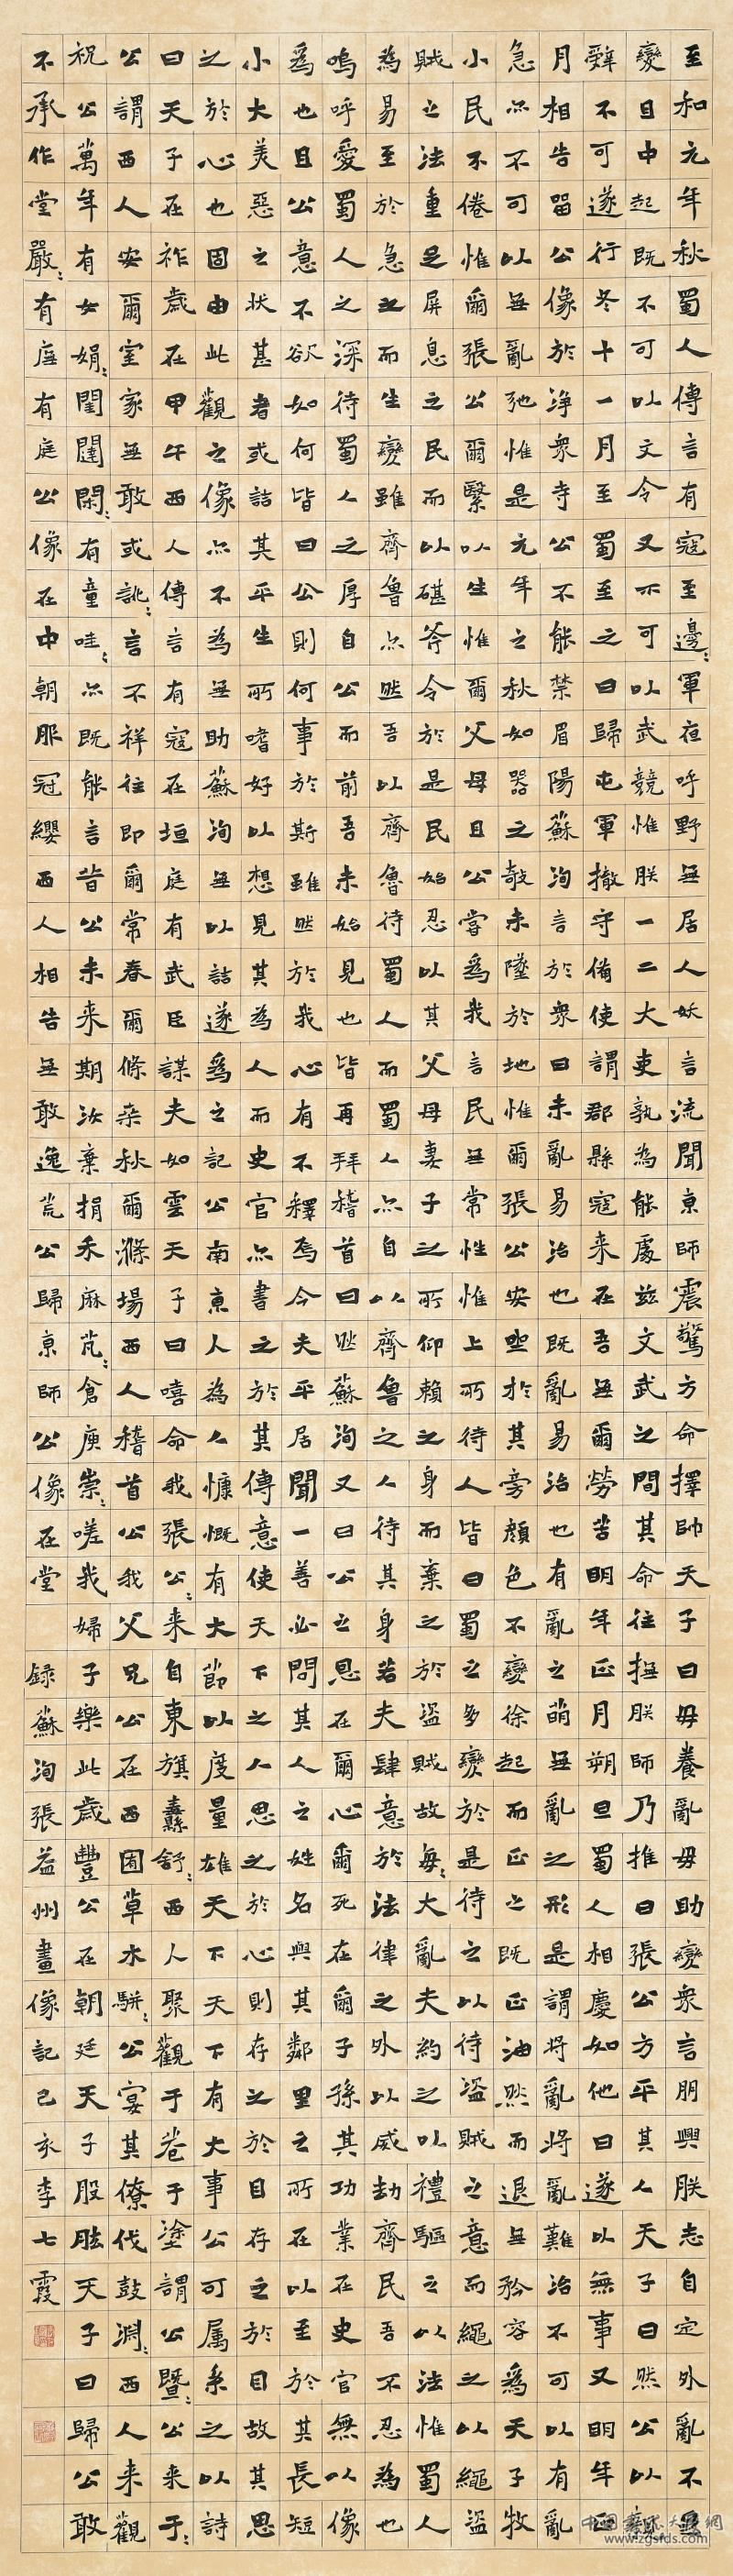 至和元年秋蜀人傳言有寇至邊〻軍夜呼野無居人妖言流聞京師震驚方命擇帥天子曰毋養亂毋助變衆言朋興朕志自定外亂不
變且中起既不可以文令又不可以武競惟朕一二大吏孰為能處茲文武之間其命往撫朕師乃推曰張公方平其人天子曰然公以親
辭不可遂行冬十一月至蜀至之日歸屯軍撤守備使謂郡縣寇来在吾無爾勞苦明年正月朔旦蜀人相慶如他日遂以無事又明年正
月相告留公像於淨衆寺公不能禁眉陽蘇洵言於衆曰未亂易治也既亂易治也有亂之萌無亂之形是謂將亂將亂難治不可以有亂
急亦不可以無亂弛惟是元年之秋如器之欹未墜於地惟爾張公安坐於其旁顏色不變徐起而正之既正油然而退無矜容為天子牧
小民不倦惟爾張公爾繄以生惟爾父母且公嘗為我言民無常性惟上所待人皆曰蜀之多變於是待之以待盜賊之意而繩之以繩盜
賊之法重足屏息之民而以碪斧令於是民始忍以其父母妻子之所仰賴之身而棄之於盜賊故每〻大亂夫約之以禮驅之以法惟蜀人
為易至於急之而生變雖齊魯亦然吾以齊魯待蜀人而蜀人亦自以齊魯之人待其身若夫肆意於法律之外以威劫齊民吾不忍為也
嗚呼愛蜀人之深待蜀人之厚自公而前吾未始見也皆再拜稽首曰然蘇洵又曰公之恩在爾心爾死在爾子孫其功業在史官無以像
為也且公意不欲如何皆曰公則何事於斯雖然於我心有不釋焉今夫平居聞一善必問其人之姓名與其鄰里之所在以至於其長短
小大美惡之狀甚者或詰其平生所嗜好以想見其為人而史官亦書之於其傳意使天下之人思之於心則存之於目存之於目故其思
之於心也固由此觀之像亦不為無助蘇洵無以詰遂為之記公南京人為人慷慨有大節以度量雄天下天下有大事公可属系之以詩
曰天子在祚歲在甲午西人傳言有寇在垣庭有武臣謀夫如雲天子曰嘻命我張公〻来自東旗纛舒〻西人聚觀于巷于塗謂公暨〻公来于〻
公謂西人安爾室家無敢或訛〻言不祥往即爾常春爾條桑秋爾滌場西人稽首公我父兄公在西囿草木駢〻公宴其僚伐鼓淵〻西人来觀
祝公萬年有女娟〻閨闥閑〻有童哇〻亦既能言昔公未来期汝棄捐禾麻芃〻倉庾崇〻嗟我婦子樂此歲豐公在朝廷天子股肱天子曰歸公敢
不承作堂嚴〻有廡有庭公像在中朝服冠纓西人相告無敢逸荒公歸京師公像在堂 録蘇洵張益州畫像記己亥李七霞
www.zgsfds.com